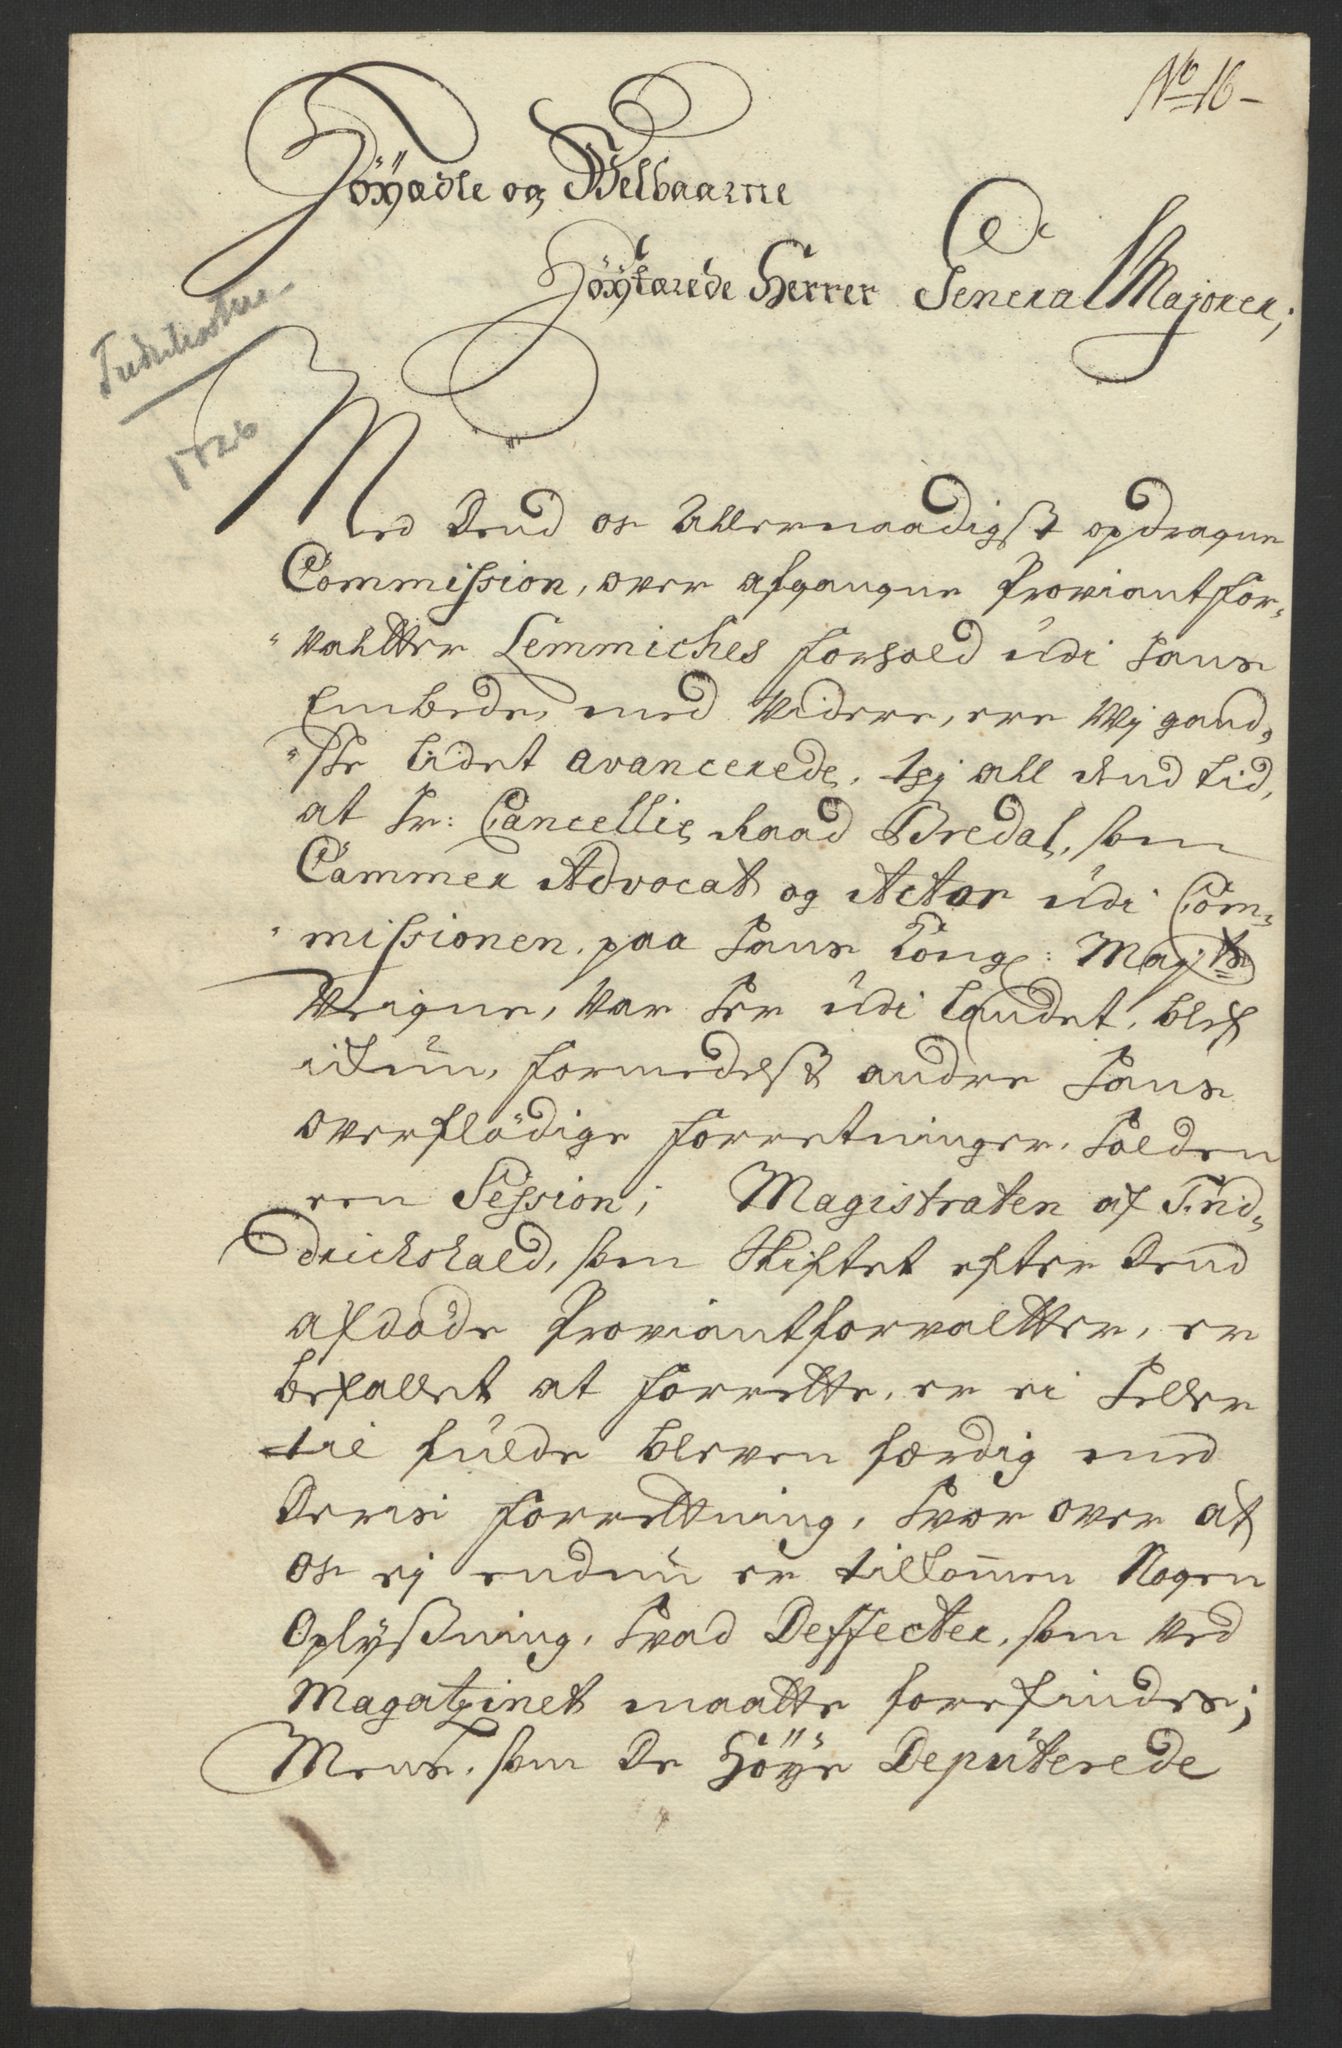 No 16-
Höÿædle og Welbaarne
Höÿstærede Herrer General Majorer;
1726
Med dend os Allernaadigst opdragne
Commission, over afgangne Proviantfor-
valtter Lemmiches forhold udi hans
Embede, med videre, ere Wj gand-
ske lidet avancerede, thj all dend tid,
at Hr: Cancellie Raad Bredal, som
Cammer Advocat og Actor udi Com-
missionen, paa Hans Kongl: Majts
Veigne, var her udi Landet, blef
ikun, formedelst andre hans
overflödige forretninger, holden
een Session; Magistraten af Frid-
drichshald, som Skiftet efter dend
afdöde Proviantforvaltter, er
befallet at forrette, er ei heller
til fulde bleven færdig med
deris forrettning, hvor over at
os ej endnu er tilkommen Nogen
Oplysning, hvad Deffecter, som ved
Magatzinet maatte forefindes;
Mens, som de Höÿe Deputerede